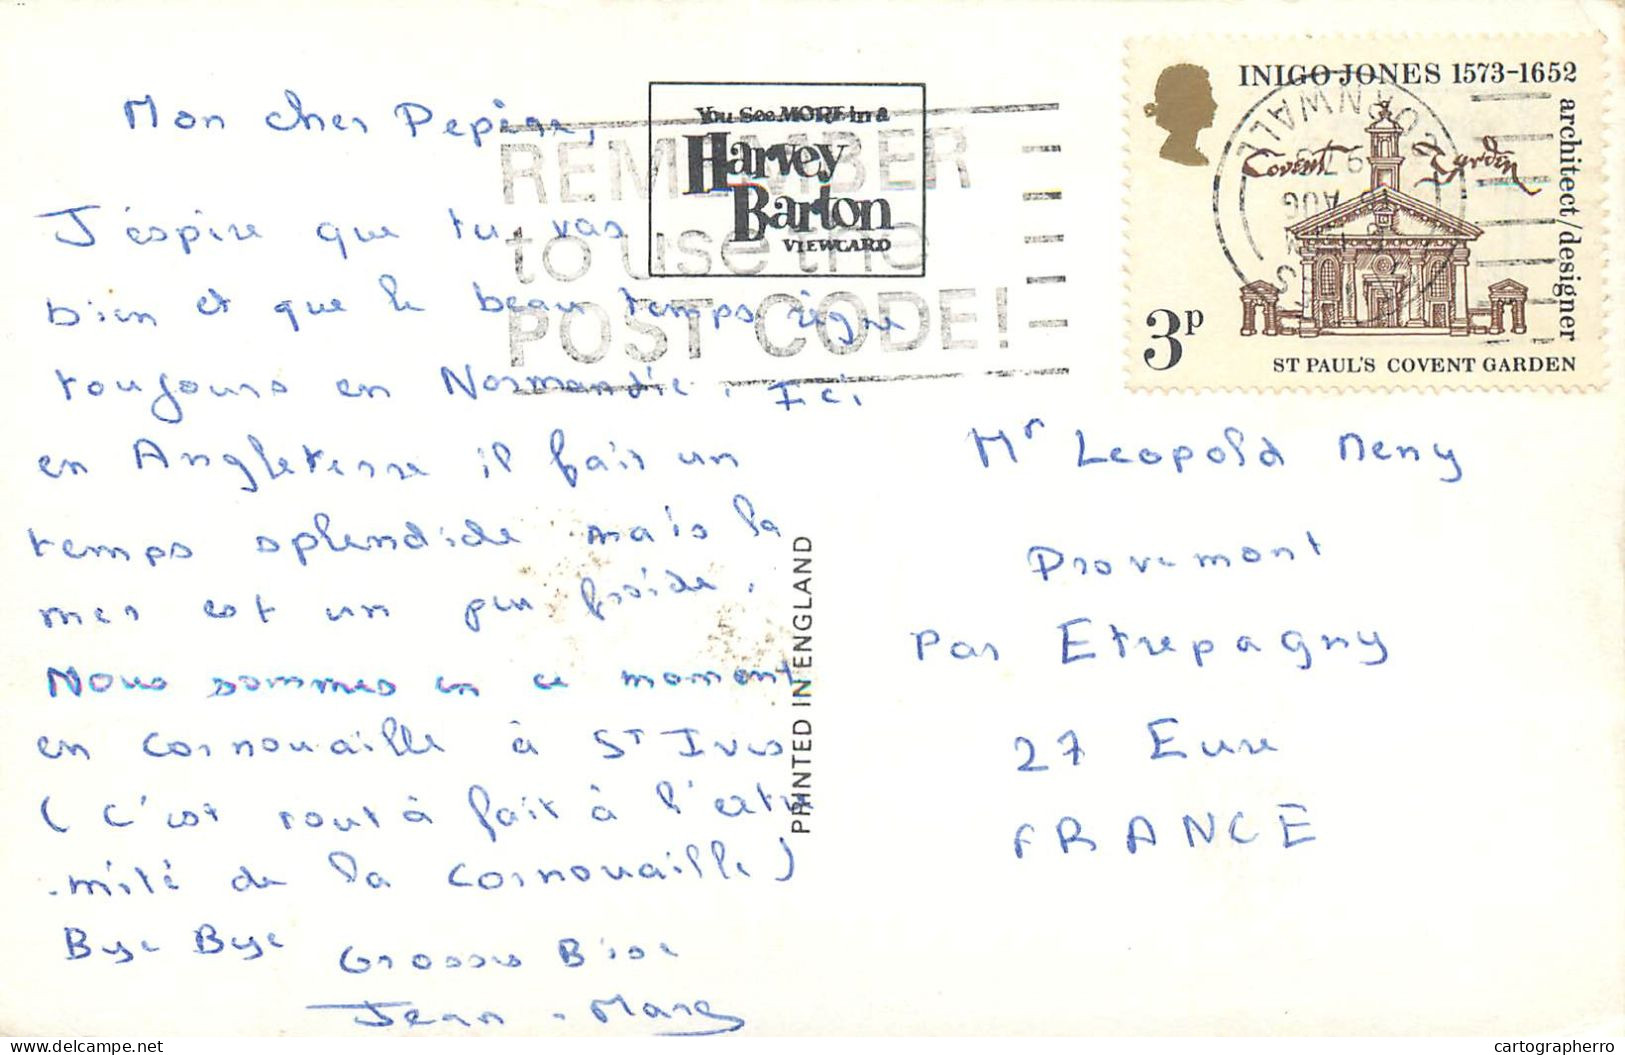 Mon cher Pepère,
J'éspère que tu vas
bien et que le beau temps règne
toujours en Normandie. Ici
en Angleterre il fait un
temps splendide mais la
mer est un peu froide.
Nous sommes en ce moment
en Cornouaille à ST Ives
(C'est tout à fait à l'extre
-mité de la Cornouaille)
Bye Bye
Grosses Bise
Jean-Marc
You See MORE in a
Harvey
Barton
VIEWCARD
REMEMBER
to use the
POST CODE!
PRINTED IN ENGLAND
INIGO JONES 1573-1652
architect/designer
Covent Garden
3P
ST PAUL'S COVENT GARDEN
CORNWALL
AUG
Mr Leopold Deny
Provemont
Par Etrepagny
27 Eure
FRANCE
delcampe.net
cartographerro